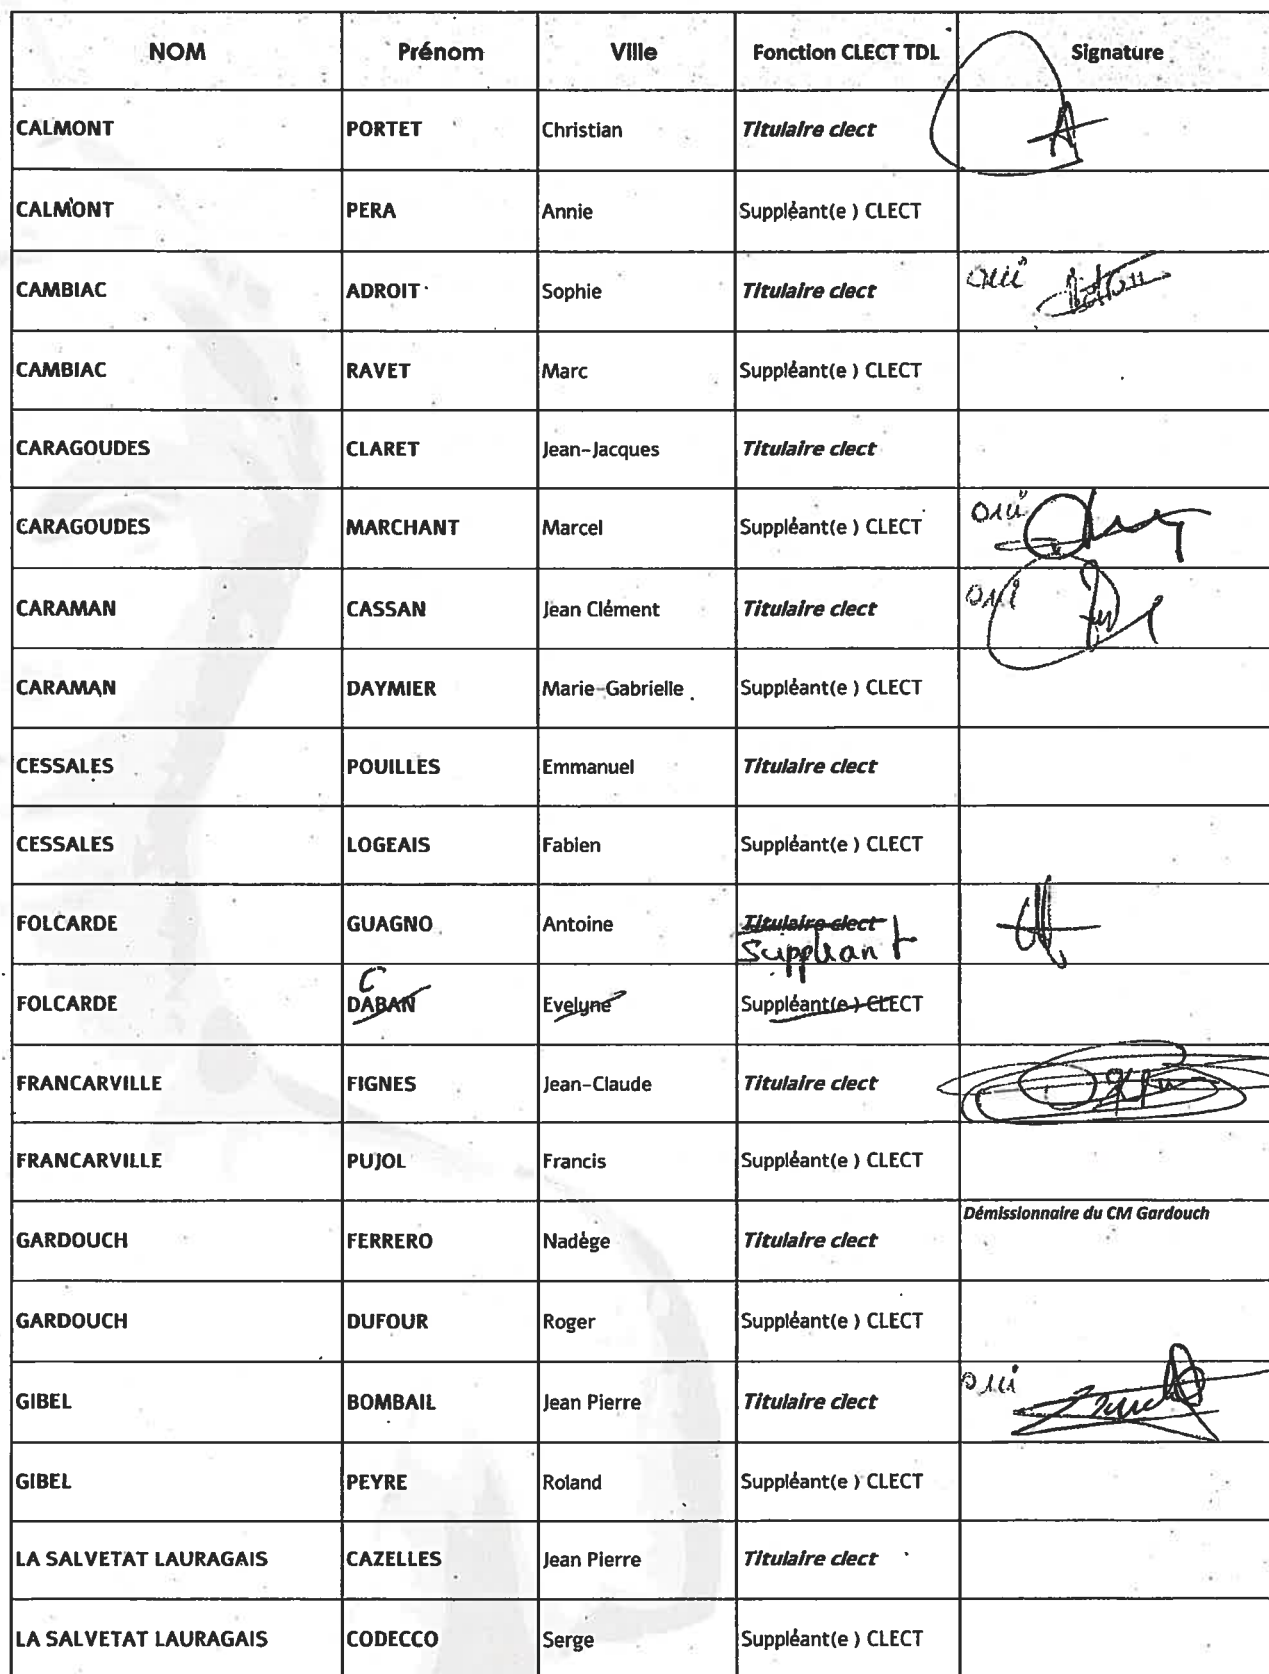 NOM Prénom Ville Fonction CLECT TDL Signature
CALMONT PORTET Christian Titulaire clect
CALMONT PERA Annie Suppléant(e ) CLECT
CAMBIAC ADROIT Sophie Titulaire clect oui
CAMBIAC RAVET Marc Suppléant(e ) CLECT
CARAGOUDES CLARET Jean-Jacques Titulaire clect
CARAGOUDES MARCHANT Marcel Suppléant(e ) CLECT oui
CARAMAN CASSAN Jean Clément Titulaire clect oui
CARAMAN DAYMIER Marie-Gabrielle Suppléant(e ) CLECT
CESSALES POUILLES Emmanuel Titulaire clect
CESSALES LOGEAIS Fabien Suppléant(e ) CLECT
FOLCARDE GUAGNO Antoine Titulaire clect
Suppléant
C
FOLCARDE DABAN Evelyne Suppléant(e ) CLECT
FRANCARVILLE FIGNES Jean-Claude Titulaire clect
FRANCARVILLE PUJOL Francis Suppléant(e ) CLECT
Démissionnaire du CM Gardouch
GARDOUCH FERRERO Nadège Titulaire clect
GARDOUCH DUFOUR Roger Suppléant(e ) CLECT
GIBEL BOMBAIL Jean Pierre Titulaire clect oui
GIBEL PEYRE Roland Suppléant(e ) CLECT
LA SALVETAT LAURAGAIS CAZELLES Jean Pierre Titulaire clect
LA SALVETAT LAURAGAIS CODECCO Serge Suppléant(e ) CLECT